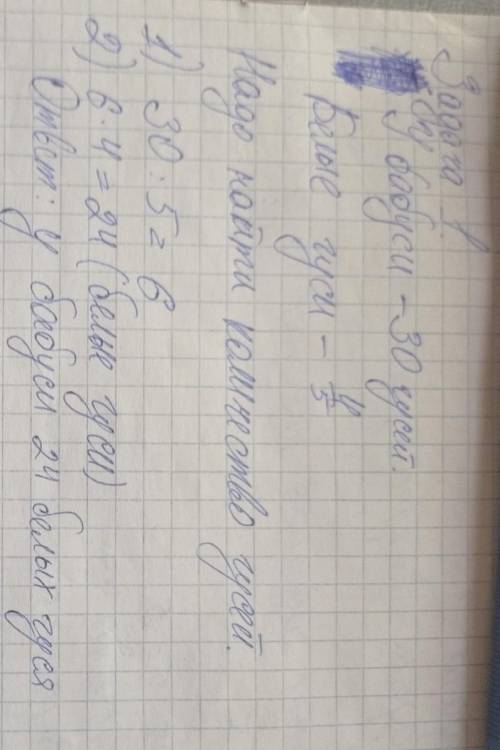 Задача 1
У бабуси – 30 гусей.
Белые гуси – 4/5
Надо найти количество гусей.
1) 30 : 5 = 6
2) 6 · 4 = 24 (белые гуси)
Ответ: у бабуси 24 белых гуся